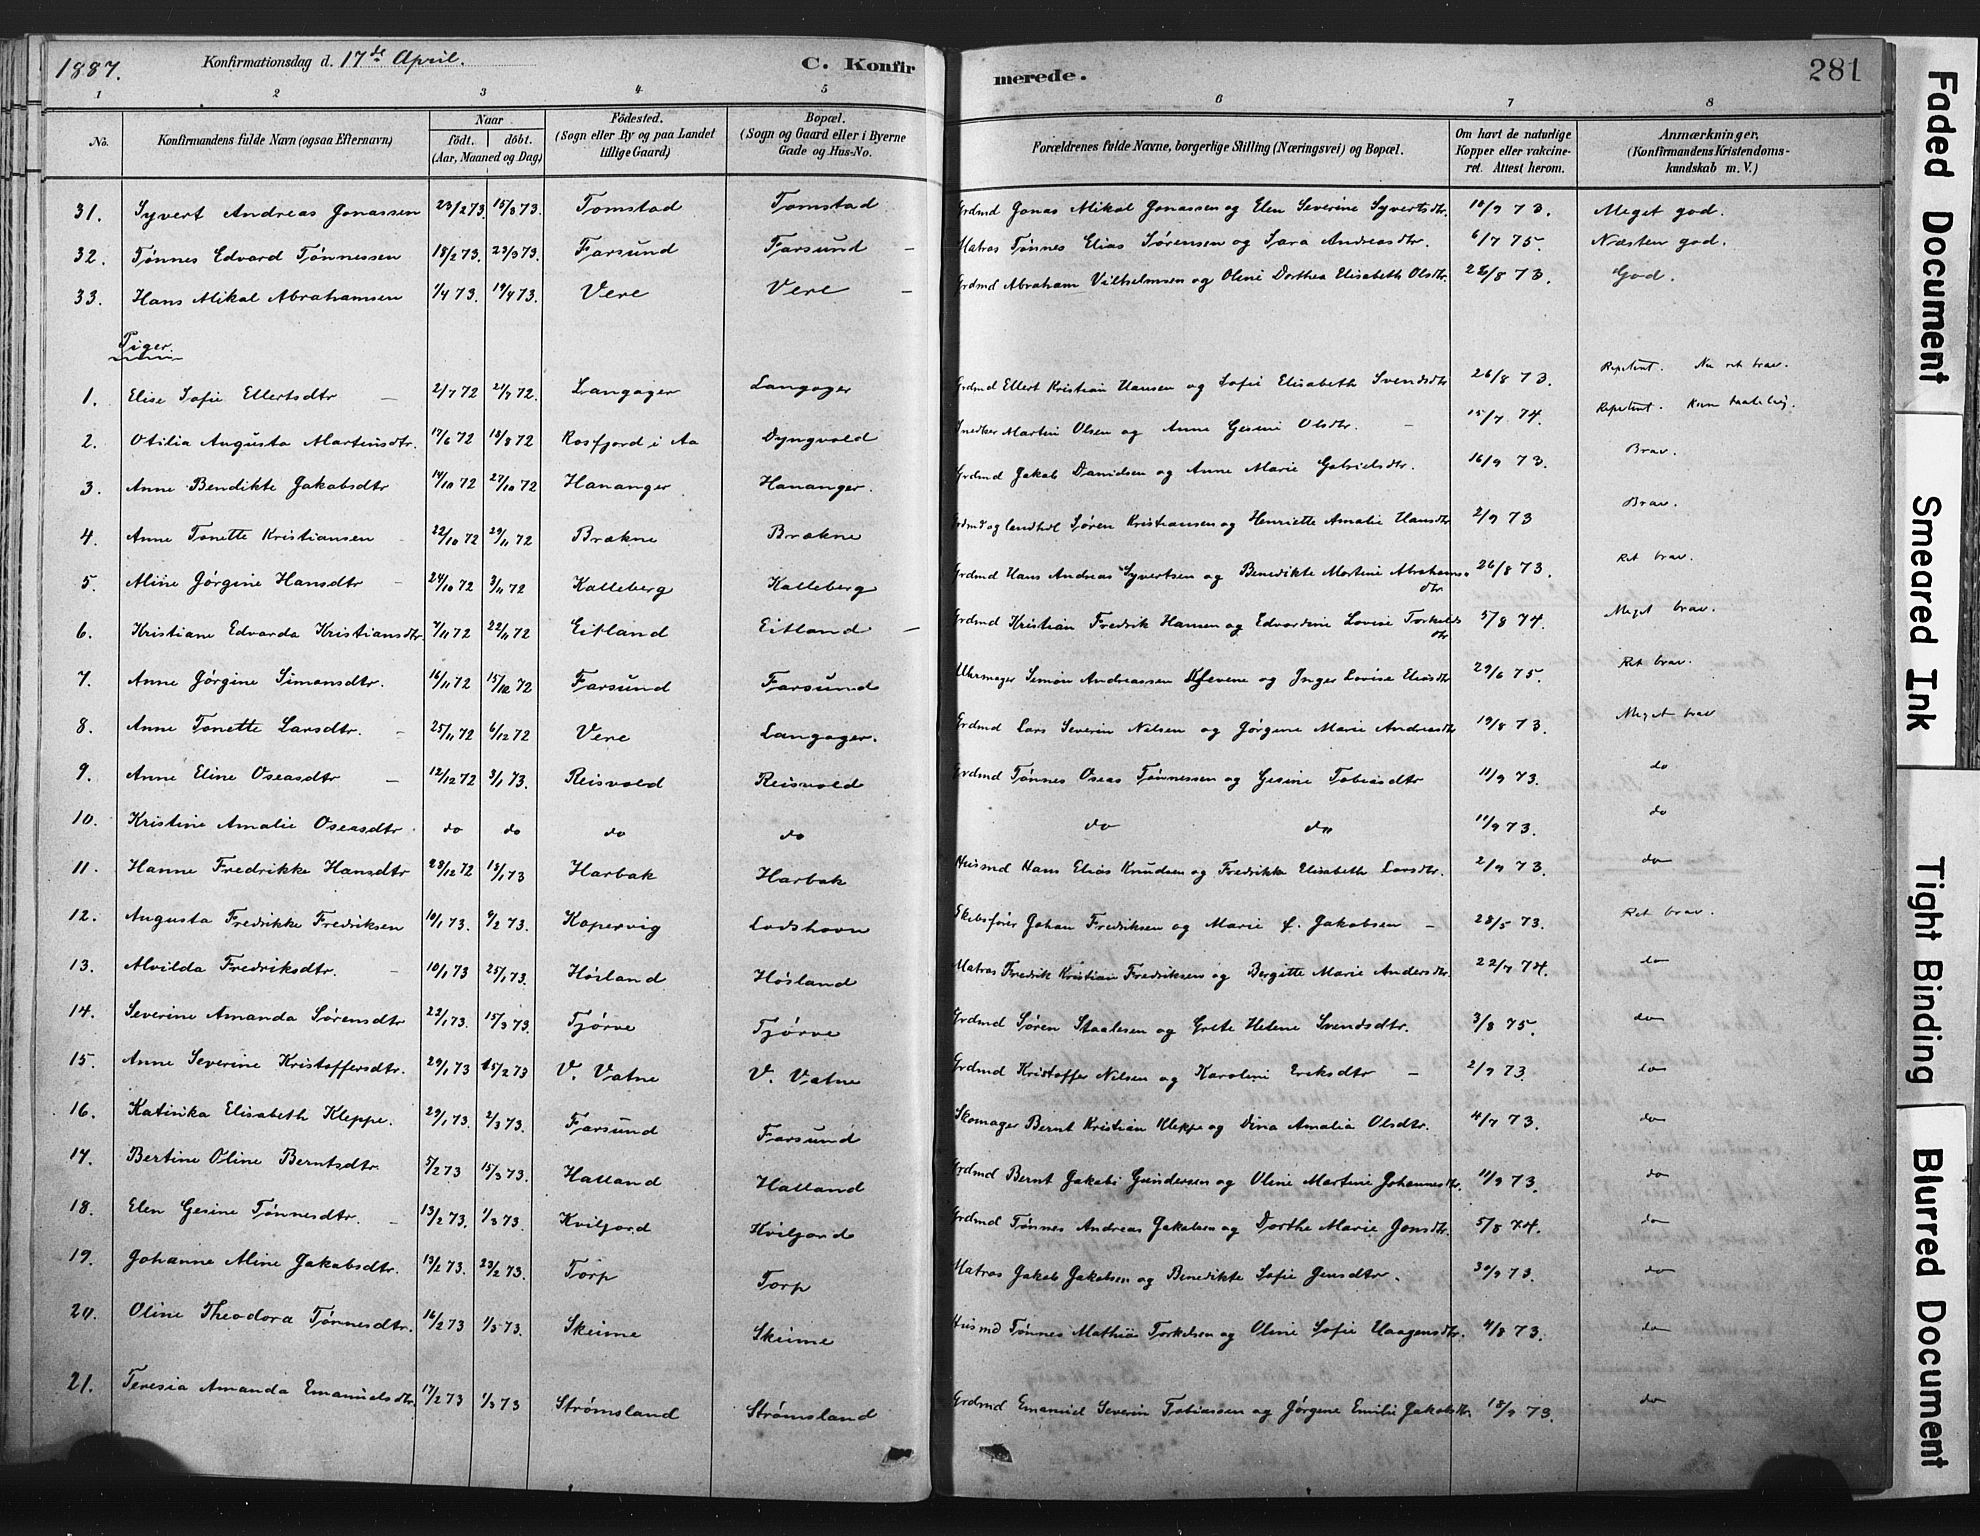 1887. Konfirmationsdag d. 17de April. C. Konfir merede. 281
1 2 3 4 5 6 7 8
No. Konfirmandens fulde Navn (ogsaa Efternavn) Naar født. døbt. (Aar, Maaned og Dag) Fødested. (Sogn eller By og paa Landet tillige Gaard) Bopæl. (Sogn og Gaard eller i Byerne Gade og Hus-No. Forældrenes fulde Navne, borgerlige Stilling (Næringsvei) og Bopæl. Om havt de naturlige Kopper eller vakcineret. Attest herom. Anmærkninger, (Konfirmandens Kristendomskundskab m. V.)
31. Syvert Andreas Jonassen 23/2 73. 15/3 73. Tomstad Tomstad Grdmd Jonas Mikal Jonassen og Elen Severine Syvertsdtr. 10/9 73. Meget god.
32. Tønnes Edvard Tønnessen 18/2 73. 23/3 73. Farsund Farsund – Matros Tønnes Elias Sørensen og Sara Andreasdtr. 6/7 75. Næsten god.
33. Hans Mikal Abrahamsen 1/4 73. 19/4 73. Vere Vere – Grdmd Abraham Vilhelmsen og Oline Dorthea Elisabeth Olsdtr. 26/8 73. God.
Piger.
1. Elise Sofie Ellertsdtr – 2/7 72 21/7 72. Langager Langager Grdmd Ellert Kristian Hansen og Sofie Elisabeth Svendsdtr 26/8 73. Repetent. Nu ret brav.
2. Otilia Augusta Martinsdtr. 17/6 72 18/8 72 Rosfjord i Aa Dyngvold Snedker Martin Olsen og Anne Gesine Olsdtr. – 15/7 74. Repetent. Kun taalelig.
3. Anne Bendikte Jakobsdtr 14/10 72 27/10 72 Hananger Hananger. Grdmd Jakob Danielsen og Anne Marie Gabrielsdtr. 16/9 73. Brav.
4. Anne Tonette Kristiansen – 22/10 72 29/11 72 Brækne Brækne Grdmd og landhdl Søren Kristiansen og Henriette Amalie Hansdtr 2/9 73 Brav.
5. Aline Jørgine Hansdtr – 24/10 72 3/11 72 Kalleberg Kalleberg Grdmd Hans Andreas Syvertsen og Benedikte Martine Abrahamsdtr 26/8 73. Ret brav.
6. Kristiane Edvarda Kristiansdtr. 7/11 72 22/11 72 Eitland Eitland – Grdmd Kristian Fredrik Hansen og Edvardine Lovise Torkildsdtr 5/8 74. Meget brav.
7. Anne Jørgine Simonsdtr. 16/11 72 15/12 72 Farsund Farsund Uhrmager Simon Andreassen og Inger Lovise Eliasdtr 29/6 75. Ret brav.
8. Anne Tonette Larsdtr. – 25/11 72 6/12 72 Vere Langager. Grdmd Lars Severin Nilsen og Jørgine Marie Andreasdtr 19/8 73. Meget brav
9. Anne Eline Oseasdtr – 12/12 72 3/1 73. Reisvold Reisvold Grdmd Tønnes Oseas Tønnessen og Gesine Tobiasdtr 11/9 73. do
10. Kristine Amalie Oseasdtr do do do do do do 11/9 73. do
11. Hanne Fredrikke Hansdtr 28/12 72 18/1 73 Harbak Harbak Husmd Hans Elias Knudsen og Fredrikke Elisabeth Larsdtr. 2/9 73. do
12. Augusta Fredrikke Fredriksen 10/1 73. 9/2 73. Kopervig Lodshavn Skibsfører Johan Fredriksen og Marie f. Jakobsen – 28/5 73. Ret brav.
13. Alvilda Fredriksdtr. – 10/1 73 25/1 73. Høsland Høsland Matros Fredrik Kristian Fredriksen og Bergitte Marie Andersdtr. 22/7 74. do
14. Severine Amanda Sørensdtr 23/1 73. 15/3 73. Tjørve Tjørve Grdmd Søren Staalesen og Grete Helene Svendsdtr. 3/8 75. do
15. Anne Severine Kristoffersdtr. 29/1 73 15/2 73 V. Vatne V. Vatne Grdmd Kristoffer Nilsen og Karoline Eriksdtr – 2/9 73. do
16. Katinka Elisabeth Kleppe. 29/1 73. 2/3 73. Farsund Farsund Skomager Bernt Kristian Kleppe og Dina Amalia Olsdtr. 4/7 73. do
17. Bertine Oline Berntsdtr. 5/2 73 15/3 73. Hatland Hatland Grdmd Bernt Jakob Gundersen og Oline Martine Johannesdtr. 11/9 73. do
18. Elen Gesine Tønnesdtr. – 13/2 73. 1/3 73. Kviljord Kviljord Grdmd Tønnes Andreas Jakobsen og Dorthe Marie Jonsdtr. 5/8 74. do
19. Johanne Aline Jakobsdtr. 13/2 73. 23/2 73. Torp Torp Matros Jakob Jakobsen og Benedikte Sofie Jensdtr. 30/9 73. do
20. Oline Theodora Tønnesdtr. 16/2 73 1/3 73. Skeime Skeime Husmd Tønnes Mathias Torkelsen og Oline Sofie Haagensdtr. 4/8 73. do
21. Teresia Amanda Emanuelsdtr. 17/2 73 1/3 73 Strømsland Strømsland Grdmd Emanuel Severin Tobiassen og Jørgine Emilie Jakobsdtr 18/9 73. do
Faded Document
Smeared Ink
Tight Binding
Blurred Document